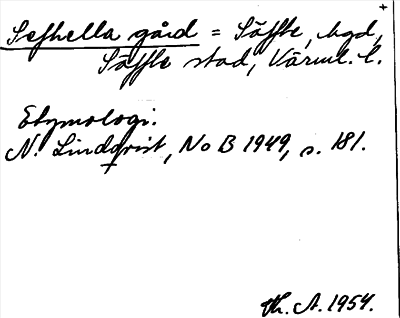 +
Sefhella gård = Säffle, hgd,
Säffle stad, Värml. l.
Etymologi:
N. Lindqvist, NoB 1949, s. 181.
Th. A. 1954.